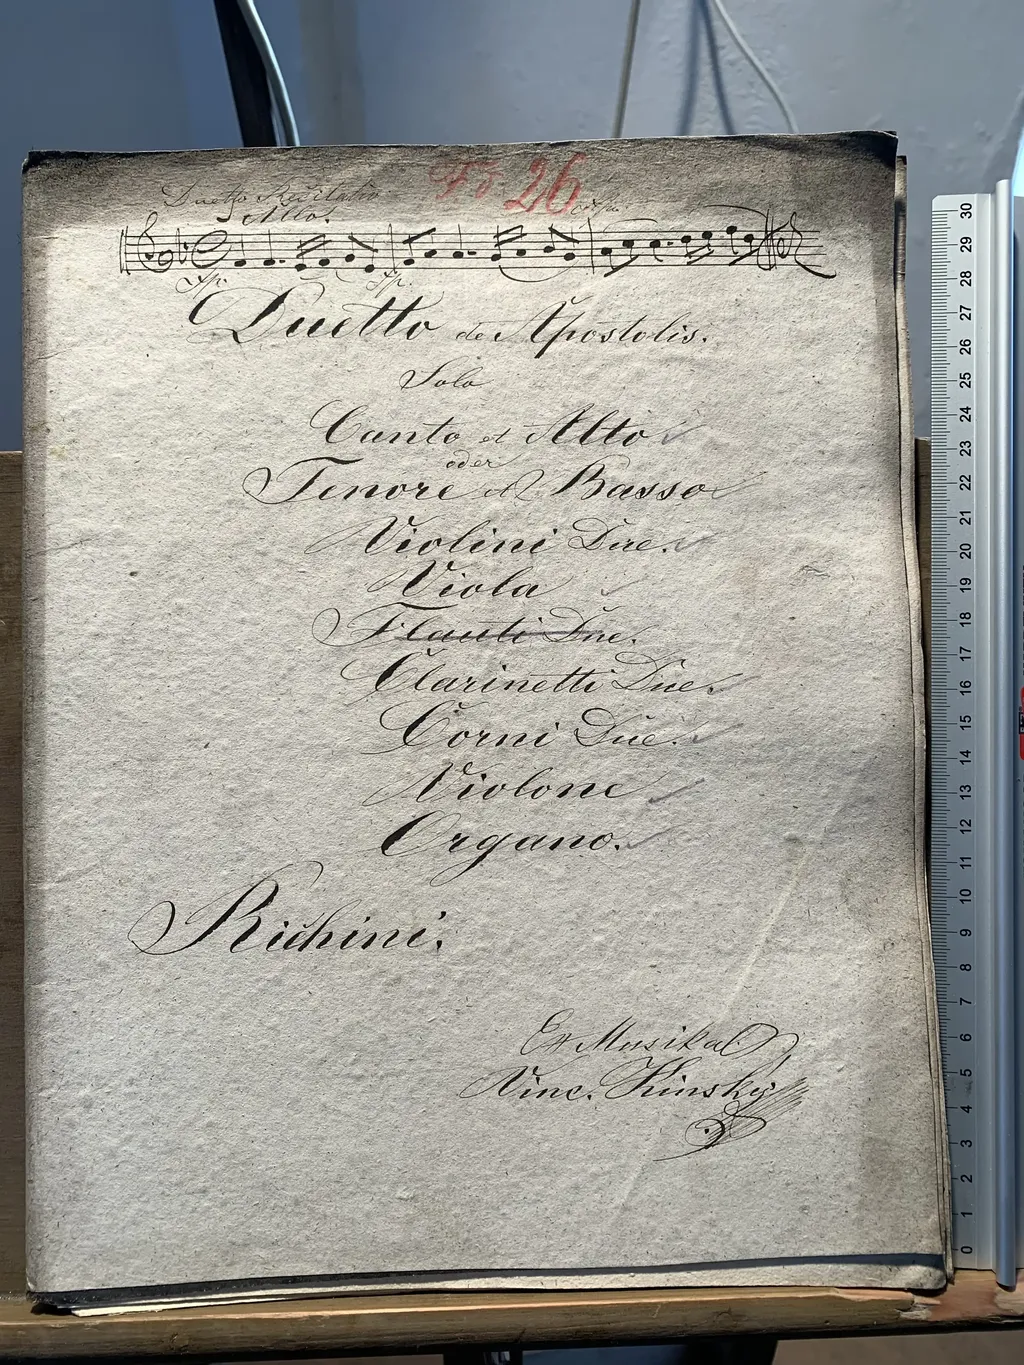 No 26
Duetto Recitativ
Allo.
Duetto de Apostolis.
Solo
Canto et Alto
oder
Tenore et Basso
Violini Due.
Viola
Flauti Due.
Clarinetti Due.
Corni Due.
Violone
Organo.
Richini.
Ex Musikal
Vinc. Kinsky
30
29
28
27
26
25
24
23
22
21
20
19
18
17
16
15
14
13
12
11
10
9
8
7
6
5
4
3
2
1
0